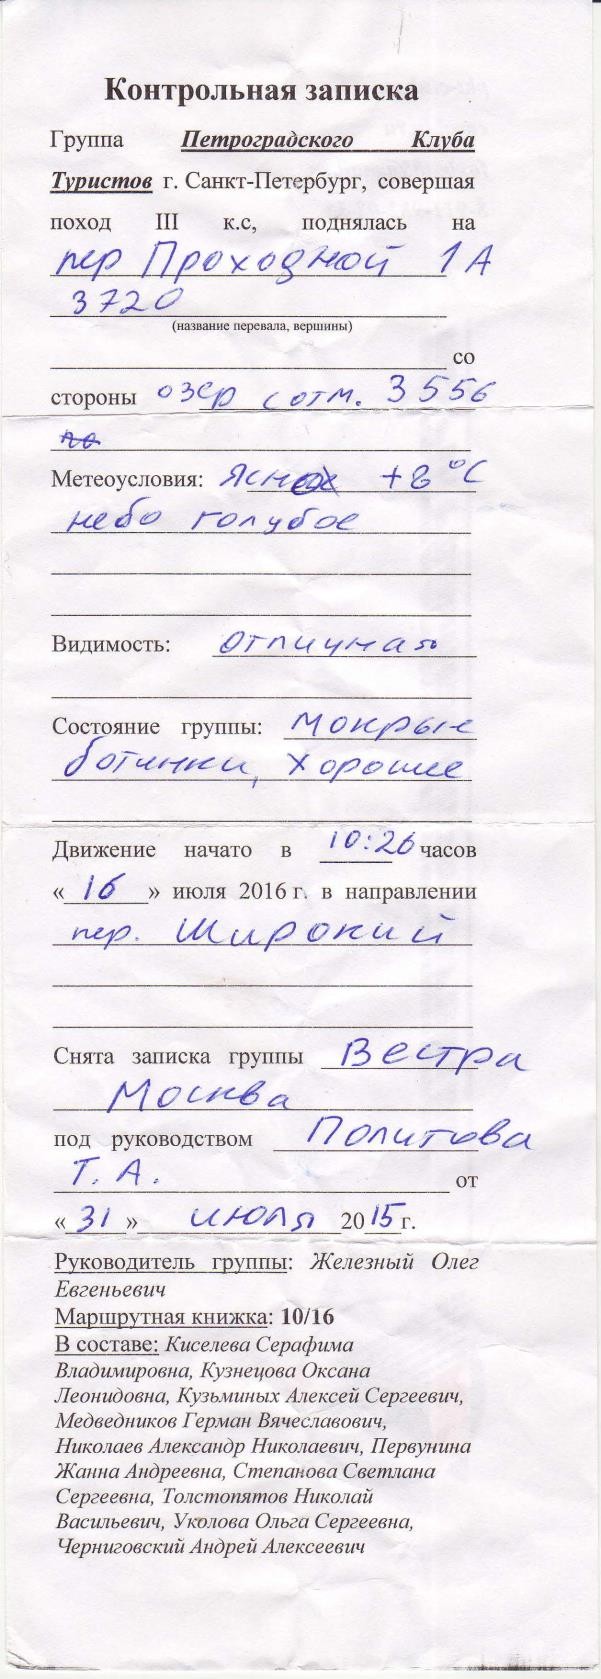 Контрольная записка
Группа Петроградского Клуба
Туристов г. Санкт-Петербург, совершая
поход III к.с, поднялась на
пер Проходной 1А
3720
(название перевала, вершины)
со
стороны озер с отм. 3556
Метеоусловия: Ясное +8°С
небо голубое
Видимость: отличная
Состояние группы: мокрые
ботинки, хорошее
Движение начато в 10:26 часов
«16» июля 2016 г. в направлении
пер. Широкий
Снята записка группы Вестра
Москва
под руководством Политова
Т. А. от
«31» июля 2015г.
Руководитель группы: Железный Олег
Евгеньевич
Маршрутная книжка: 10/16
В составе: Киселева Серафима
Владимировна, Кузнецова Оксана
Леонидовна, Кузьминых Алексей Сергеевич,
Медведников Герман Вячеславович,
Николаев Александр Николаевич, Первунина
Жанна Андреевна, Степанова Светлана
Сергеевна, Толстопятов Николай
Васильевич, Уколова Ольга Сергеевна,
Черниговский Андрей Алексеевич